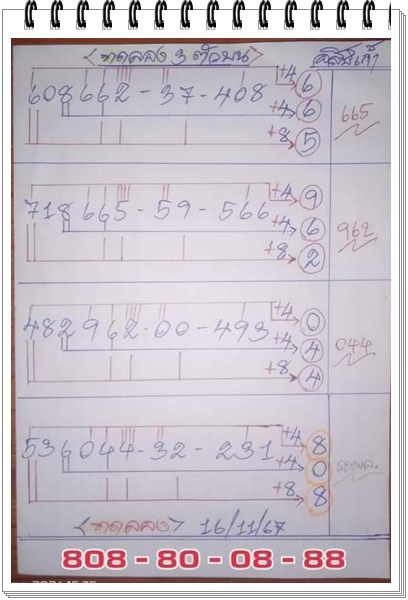 <ทดลอง 3 ตัวบน>
+4 6
608662-37-408 +4 6 665
+8 5
+4 9
718665-59-566 +4 6 962
+8 2
+4 0
482962-00-493 +4 4 044
+8 4
+4 8
536044-32-231 +4 0 รอผล
+8 8
<ทดลอง> 16/11/67
808 - 80 - 08 - 88